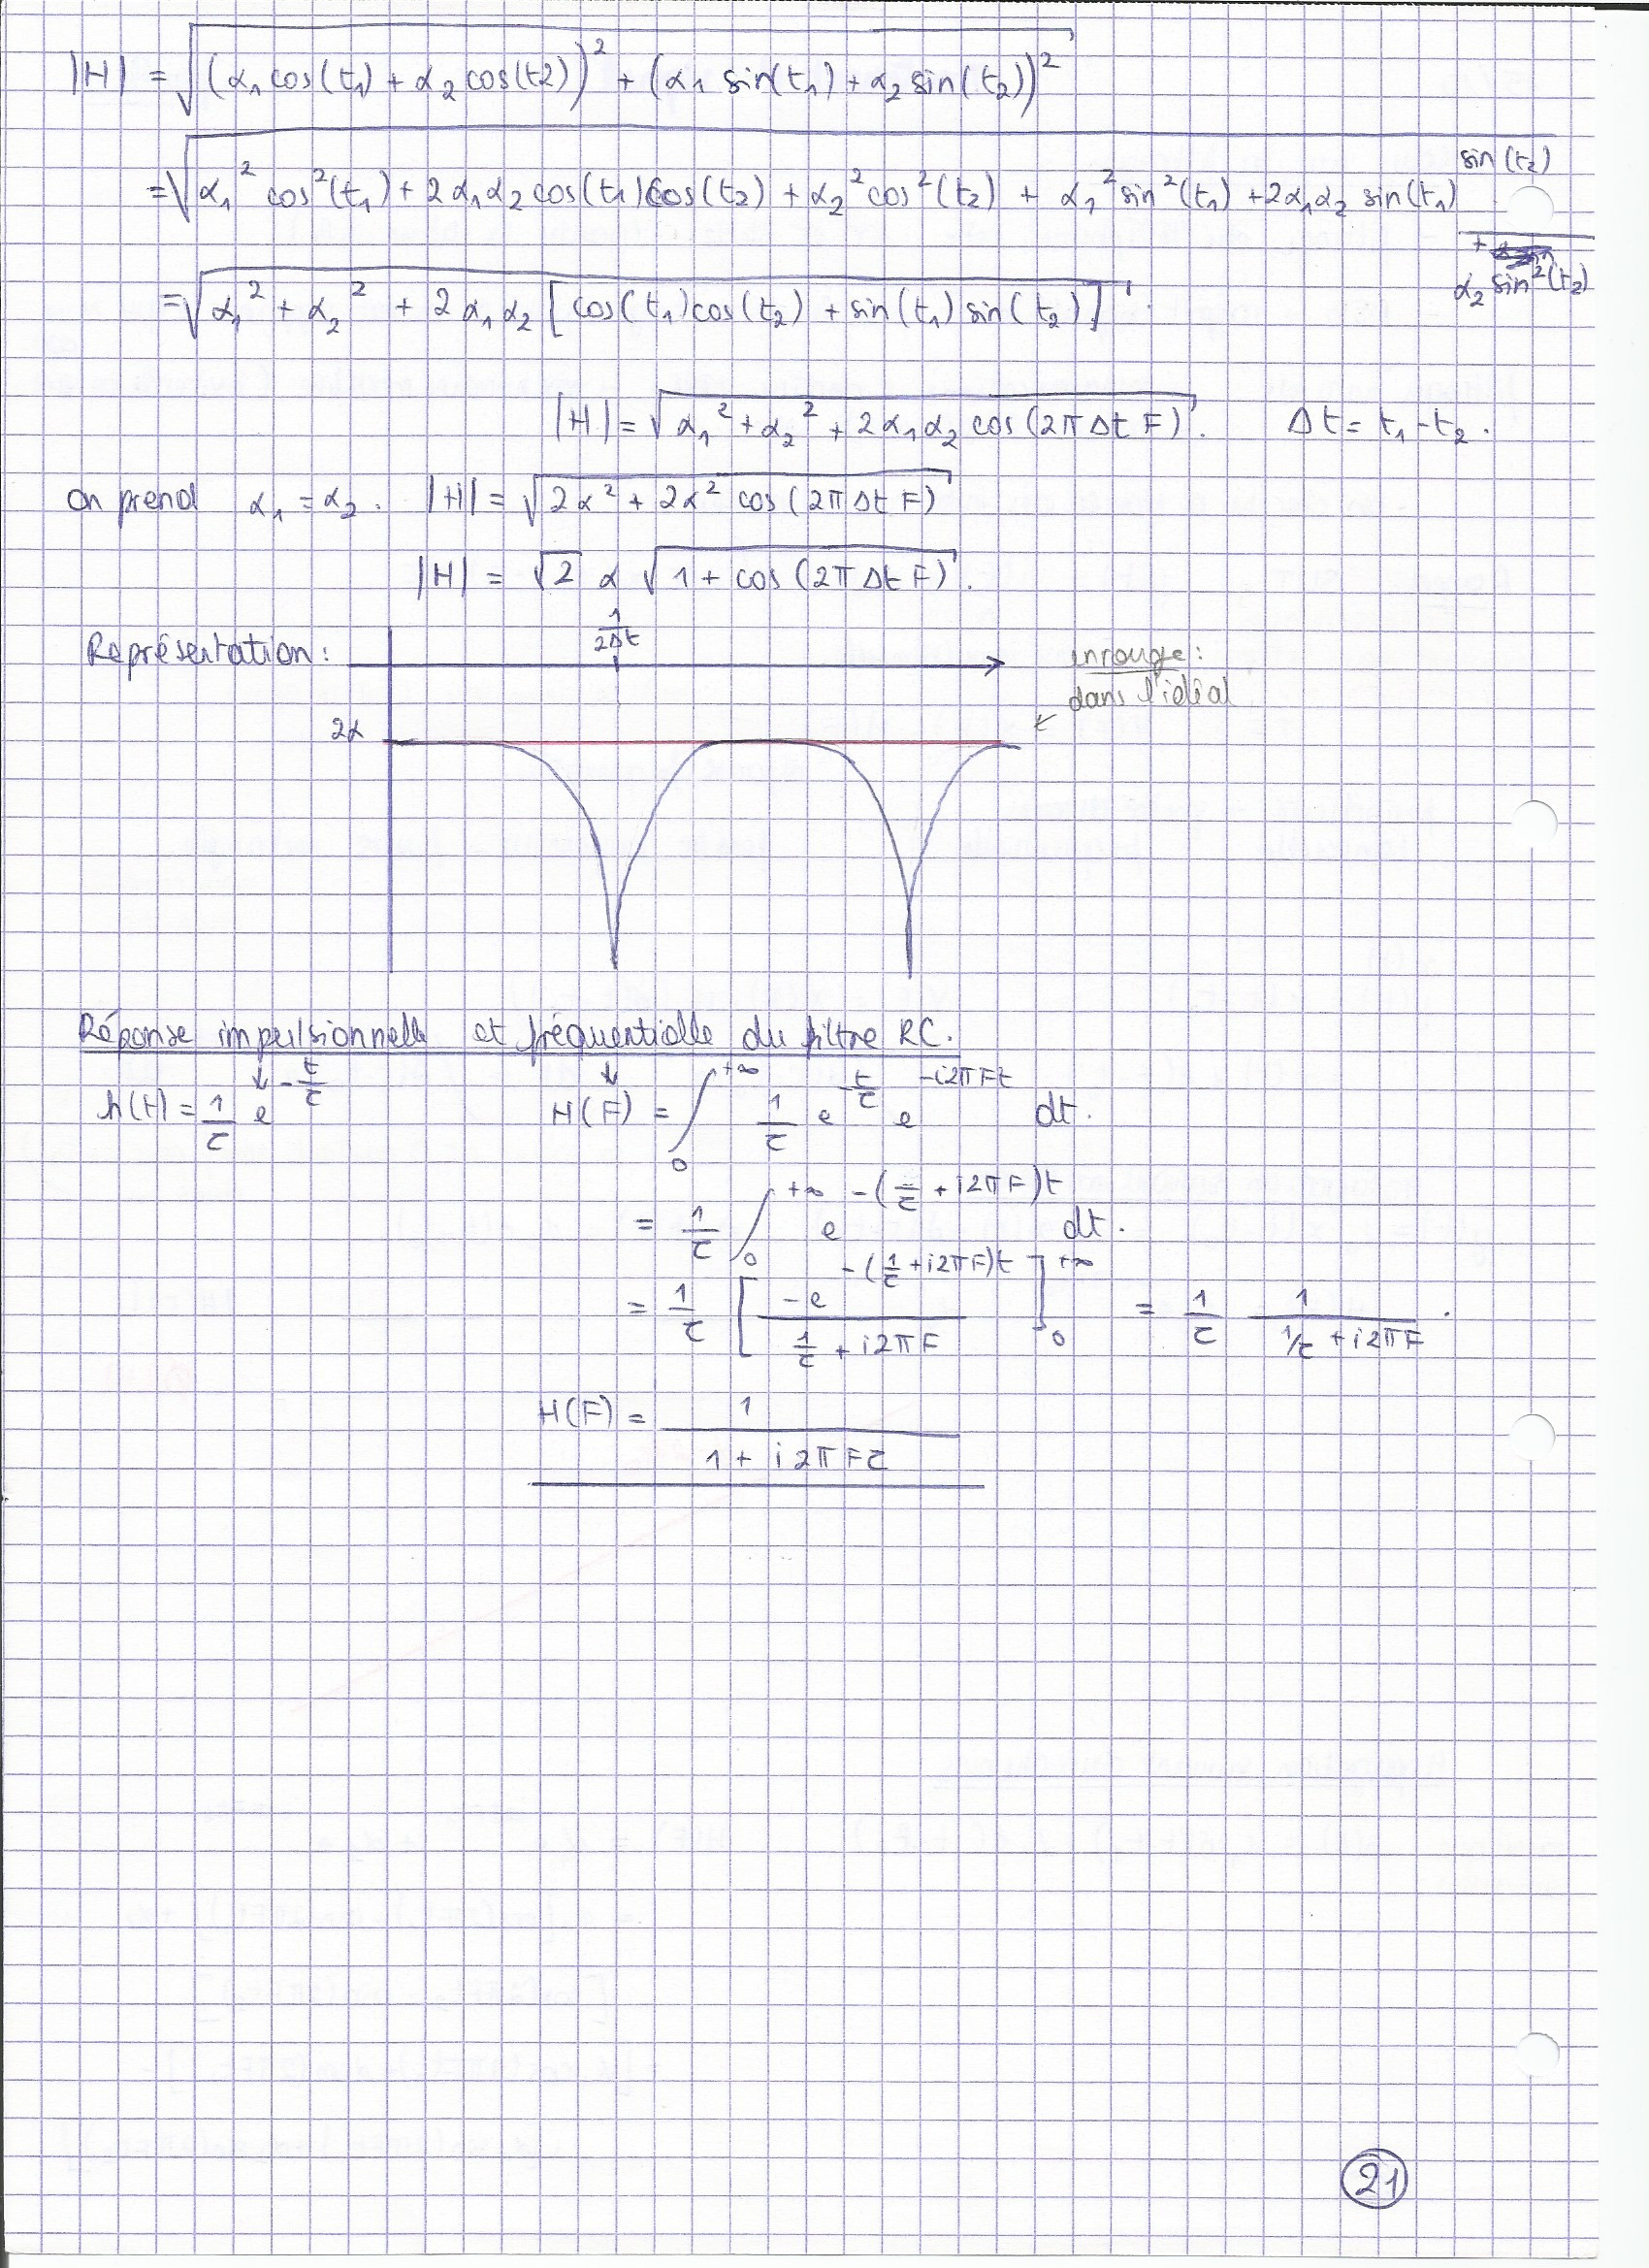 |H| = √((α₁ cos(t₁) + α₂ cos(t2))² + (α₁ sin(t₁) + α₂ sin(t₂))²)
= √(α₁² cos²(t₁) + 2α₁α₂ cos(t₁)cos(t₂) + α₂² cos²(t₂) + α₁² sin²(t₁) + 2α₁α₂ sin(t₁) sin(t₂)
+ α₂ sin²(t₂)
= √(α₁² + α₂² + 2α₁α₂ [cos(t₁)cos(t₂) + sin(t₁) sin(t₂)]).
|H| = √(α₁² + α₂² + 2α₁α₂ cos(2πΔtF)). Δt = t₁ - t₂.
On prend α₁ = α₂. |H| = √(2α² + 2α² cos(2πΔtF))
|H| = √2 α √(1 + cos(2πΔtF)).
1/2Δt
Représentation :
en rouge :
dans l'idéal
2α
Réponse impulsionnelle et fréquentielle du filtre RC.
h(t) = 1/τ e^(-t/τ) H(F) = ∫₀^(+∞) 1/τ e^(-t/τ) e^(-i2πFt) dt.
= 1/τ ∫₀^(+∞) e^(-(1/τ + i2πF)t) dt.
= 1/τ [-e^(-(1/τ + i2πF)t) / (1/τ + i2πF)]₀^(+∞) = 1/τ 1/(1/τ + i2πF).
H(F) = 1/(1 + i2πFτ)
21